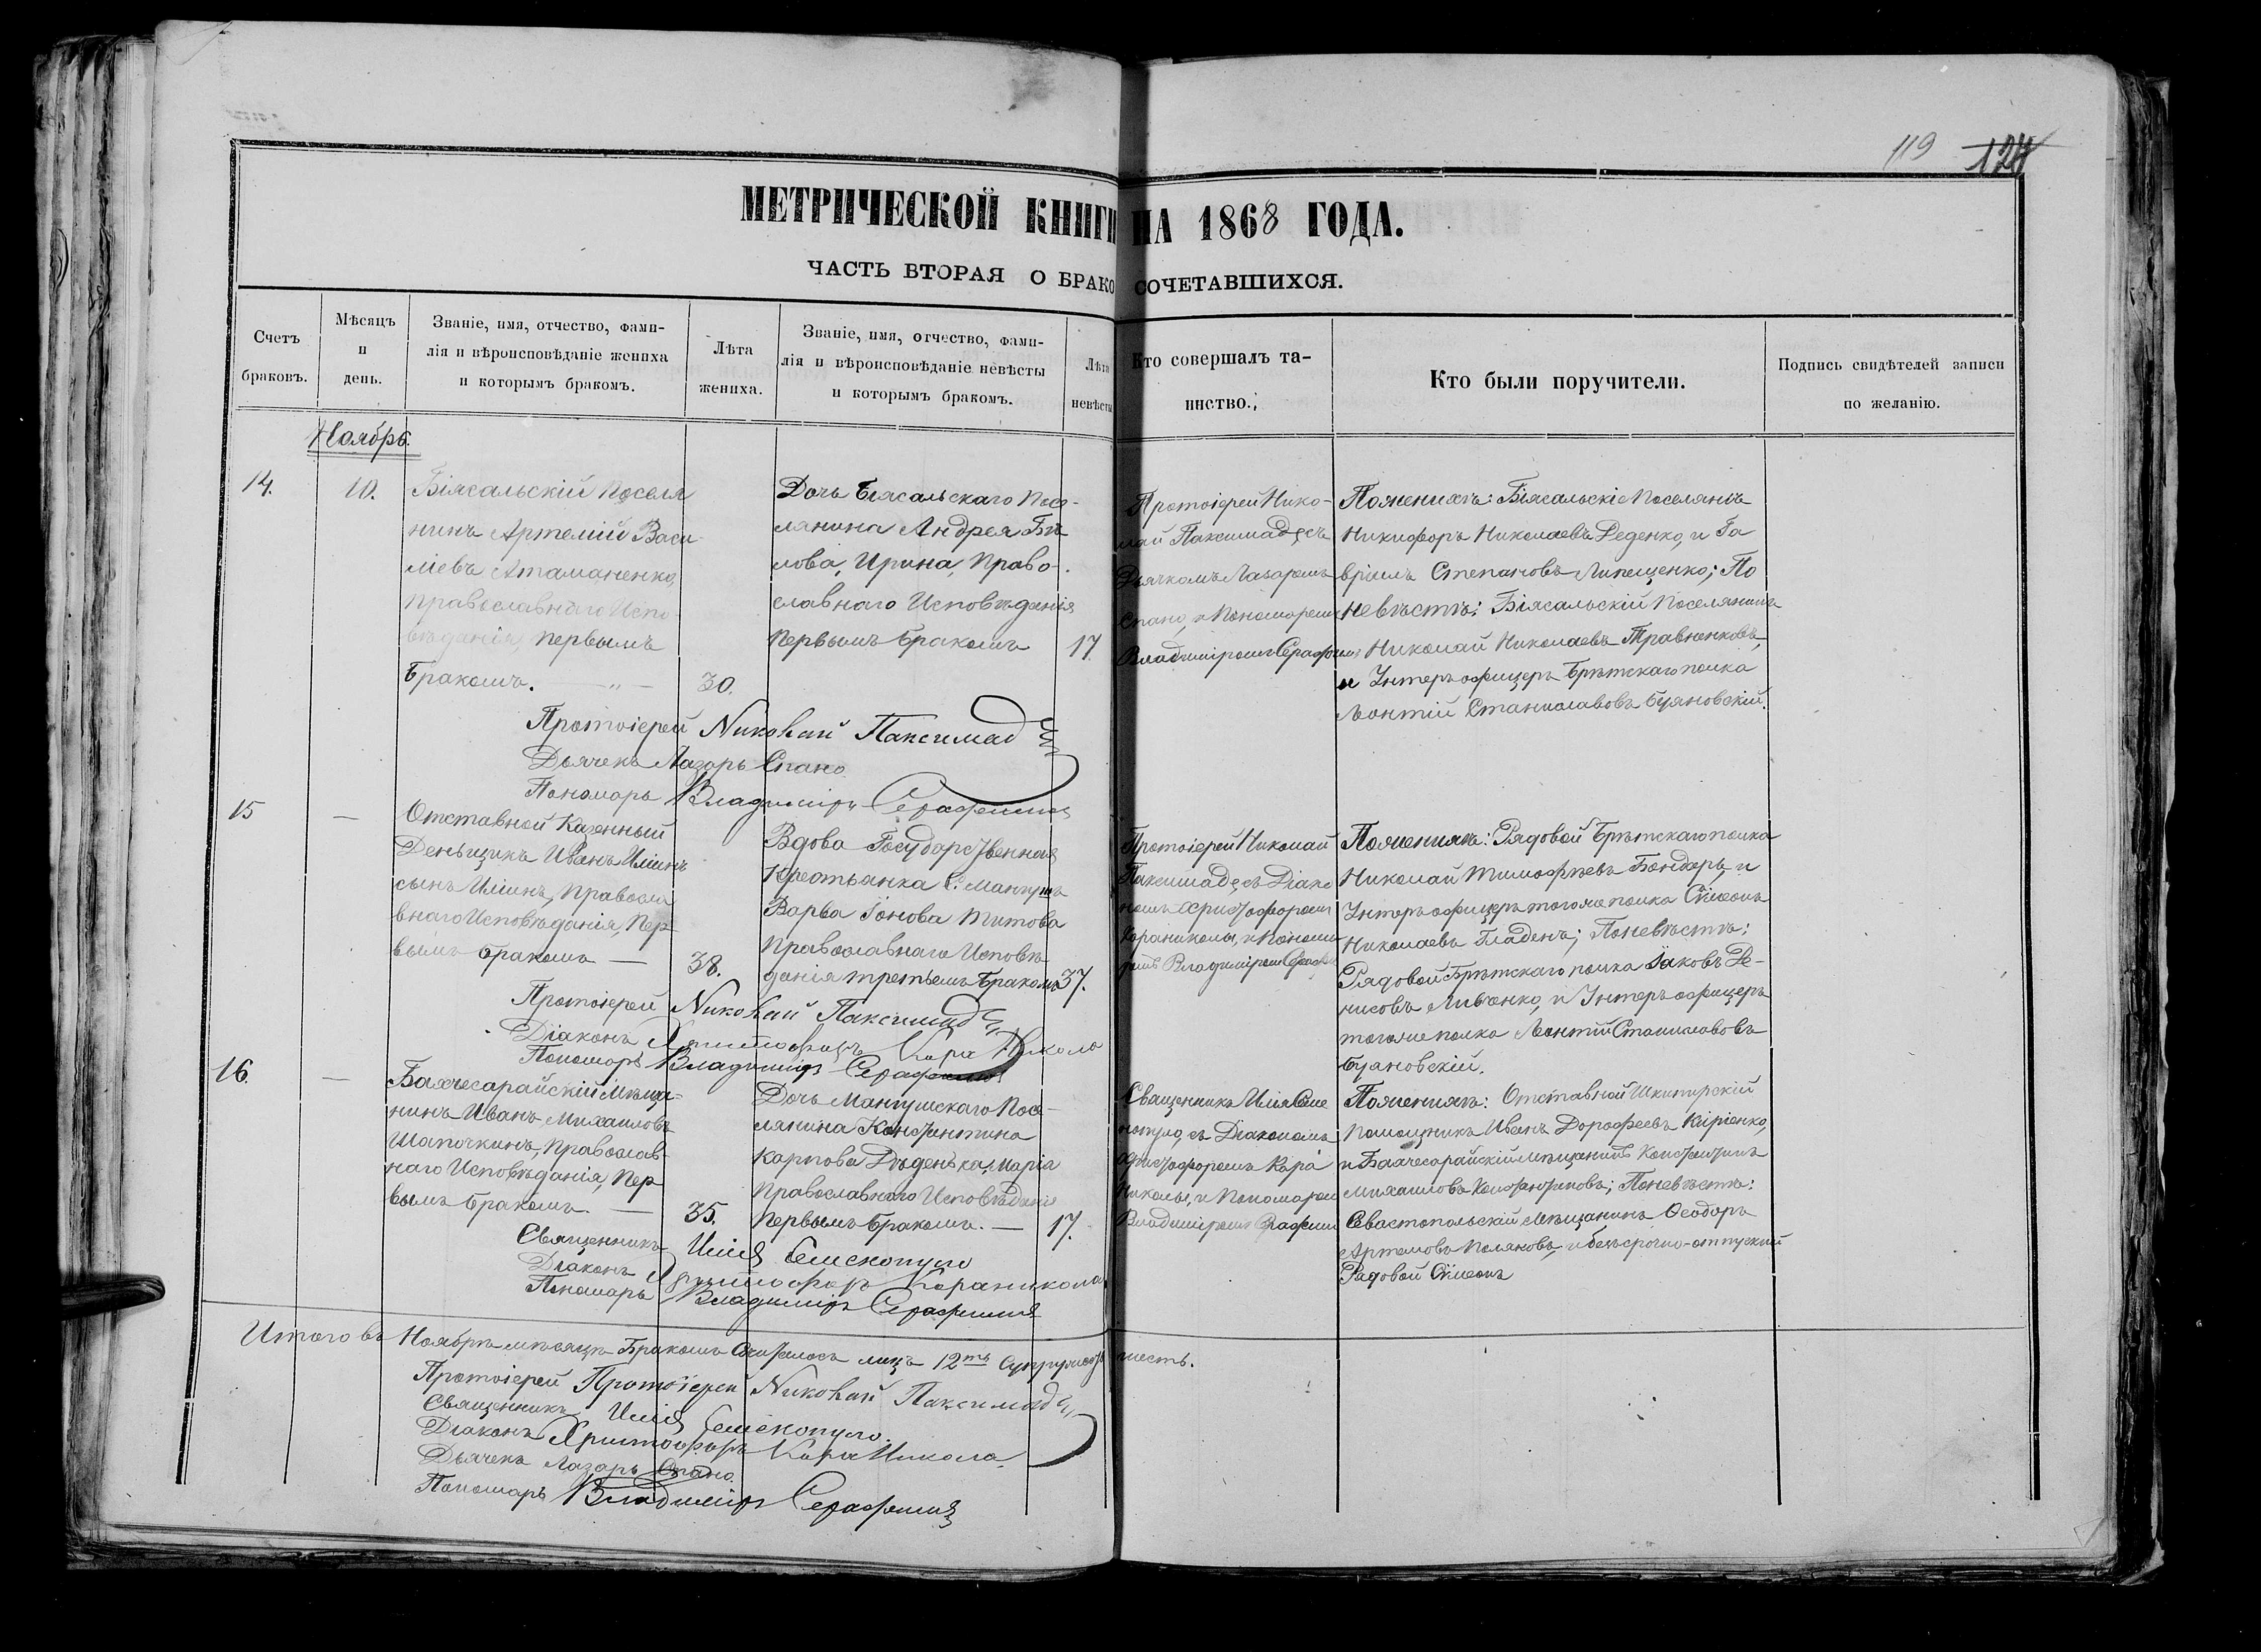 119 124
МЕТРИЧЕСКОЙ КНИГИ НА 1868 ГОДА.
ЧАСТЬ ВТОРАЯ О БРАКОСОЧЕТАВШИХСЯ.
Счетъ
браковъ.
Мѣсяцъ
и
день.
Званіе, имя, отчество, фами-
лія и вѣроисповѣданіе жениха
и которымъ бракомъ.
Лѣта
жениха.
Званіе, имя, отчество, фами-
лія и вѣроисповѣданіе невѣсты
и которымъ бракомъ.
Лѣта
невѣсты
Кто совершалъ та-
инство.
Кто были поручители.
Подпись свидѣтелей записи
по желанію.
Ноябрь.
14.
10.
Біясальскій Поселя
нинъ Артемій Васи
ліевъ Атаманенко,
Православнаго Испо-
вѣданія, первымъ
Бракомъ.
30.
Дочь Біясальскаго Посе-
лянина Андрея Бѣ
лова, Ирина, Право-
славнаго Исповѣданія
Первымъ Бракомъ
17.
Протоіерей Нико-
лай Паксимадъ съ
Дьячкомъ Лазаремъ
Спано, и Пономаремъ
Владиміромъ
По женихѣ: Біясальскіе Поселяне
Никифоръ Николаевъ Феденко, и Га
вріилъ Степановъ Липещенко; По
невѣстѣ: Біясальскій Поселянинъ
Николай Николаевъ Травненковъ,
и Унтеръ офицеръ Брѣтскаго полка
Леонтій Станиславовъ Буяновскій.
Протоіерей Николай Паксимад
Дьячекъ Лазарь Спано
Пономарь Владиміръ
15
—
Отставной Казенный
Деньщикъ Иванъ Ильинъ
сынъ Ильинъ, Правосла
внаго Исповѣданія, Пер
вымъ Бракомъ —
38.
Вдова Государственная
Крестьянка С. Мангушъ
Варва Іонова Титова
Православнаго Исповѣ-
данія третьимъ Бракомъ
37.
Протоіерей Николай
Паксимадъ съ Діако
номъ Христофоромъ
Караниколы, и Понома-
ремъ Владиміромъ
По женихѣ: Рядовой Брѣтскаго полка
Николай Тимофѣевъ Бондарь, и
Унтеръ офицеръ того же полка Сімеонъ
Николаевъ Гладенъ; По невѣстѣ:
Рядовой Брѣтскаго полка Іаковъ Де-
нисовъ Ливченко, и Унтеръ офицеръ
того же полка Леонтій Станиславовъ
Буяновскій.
Протоіерей Николай Паксимад
Діаконъ Христофоръ Кара Никола
Пономарь Владиміръ
16.
—
Бахчесарайскій Мѣща-
нинъ Иванъ Михаиловъ
Шапочкинъ, Православ-
наго Исповѣданія, Пер
вымъ Бракомъ. —
35.
Дочь Мангушскаго Посе-
лянина Константина
Карпова Дѣденька, Марія
Православнаго Исповѣданія
Первымъ Бракомъ. —
17.
Священникъ Илія Семе
нопуло, съ Діакономъ
Христофоромъ Кара
Николы, и Пономаремъ
Владиміромъ
По женихѣ: Отставной Шкиперскій
Помощникъ Иванъ Дорофеевъ Кіріенко,
и Бахчесарайскій Мѣщанинъ Константинъ
Михаиловъ Константиновъ; По невѣстѣ:
Севастопольскій Мѣщанинъ Феодоръ
Артемовъ Поляковъ, и безсрочно-отпускной
Рядовой Сімеонъ
Священникъ Илія
Діаконъ Христофоръ Караникола
Пономарь Владиміръ
Итого въ Ноябрѣ мѣсяцѣ Бракомъ Сочеталось лицъ 12ть Супружествъ шесть.
Протоіерей Протоіерей Николай Паксимад
Священникъ Илія
Діаконъ Христофоръ Кара Никола
Дьячекъ Лазарь Спано.
Пономарь Владиміръ